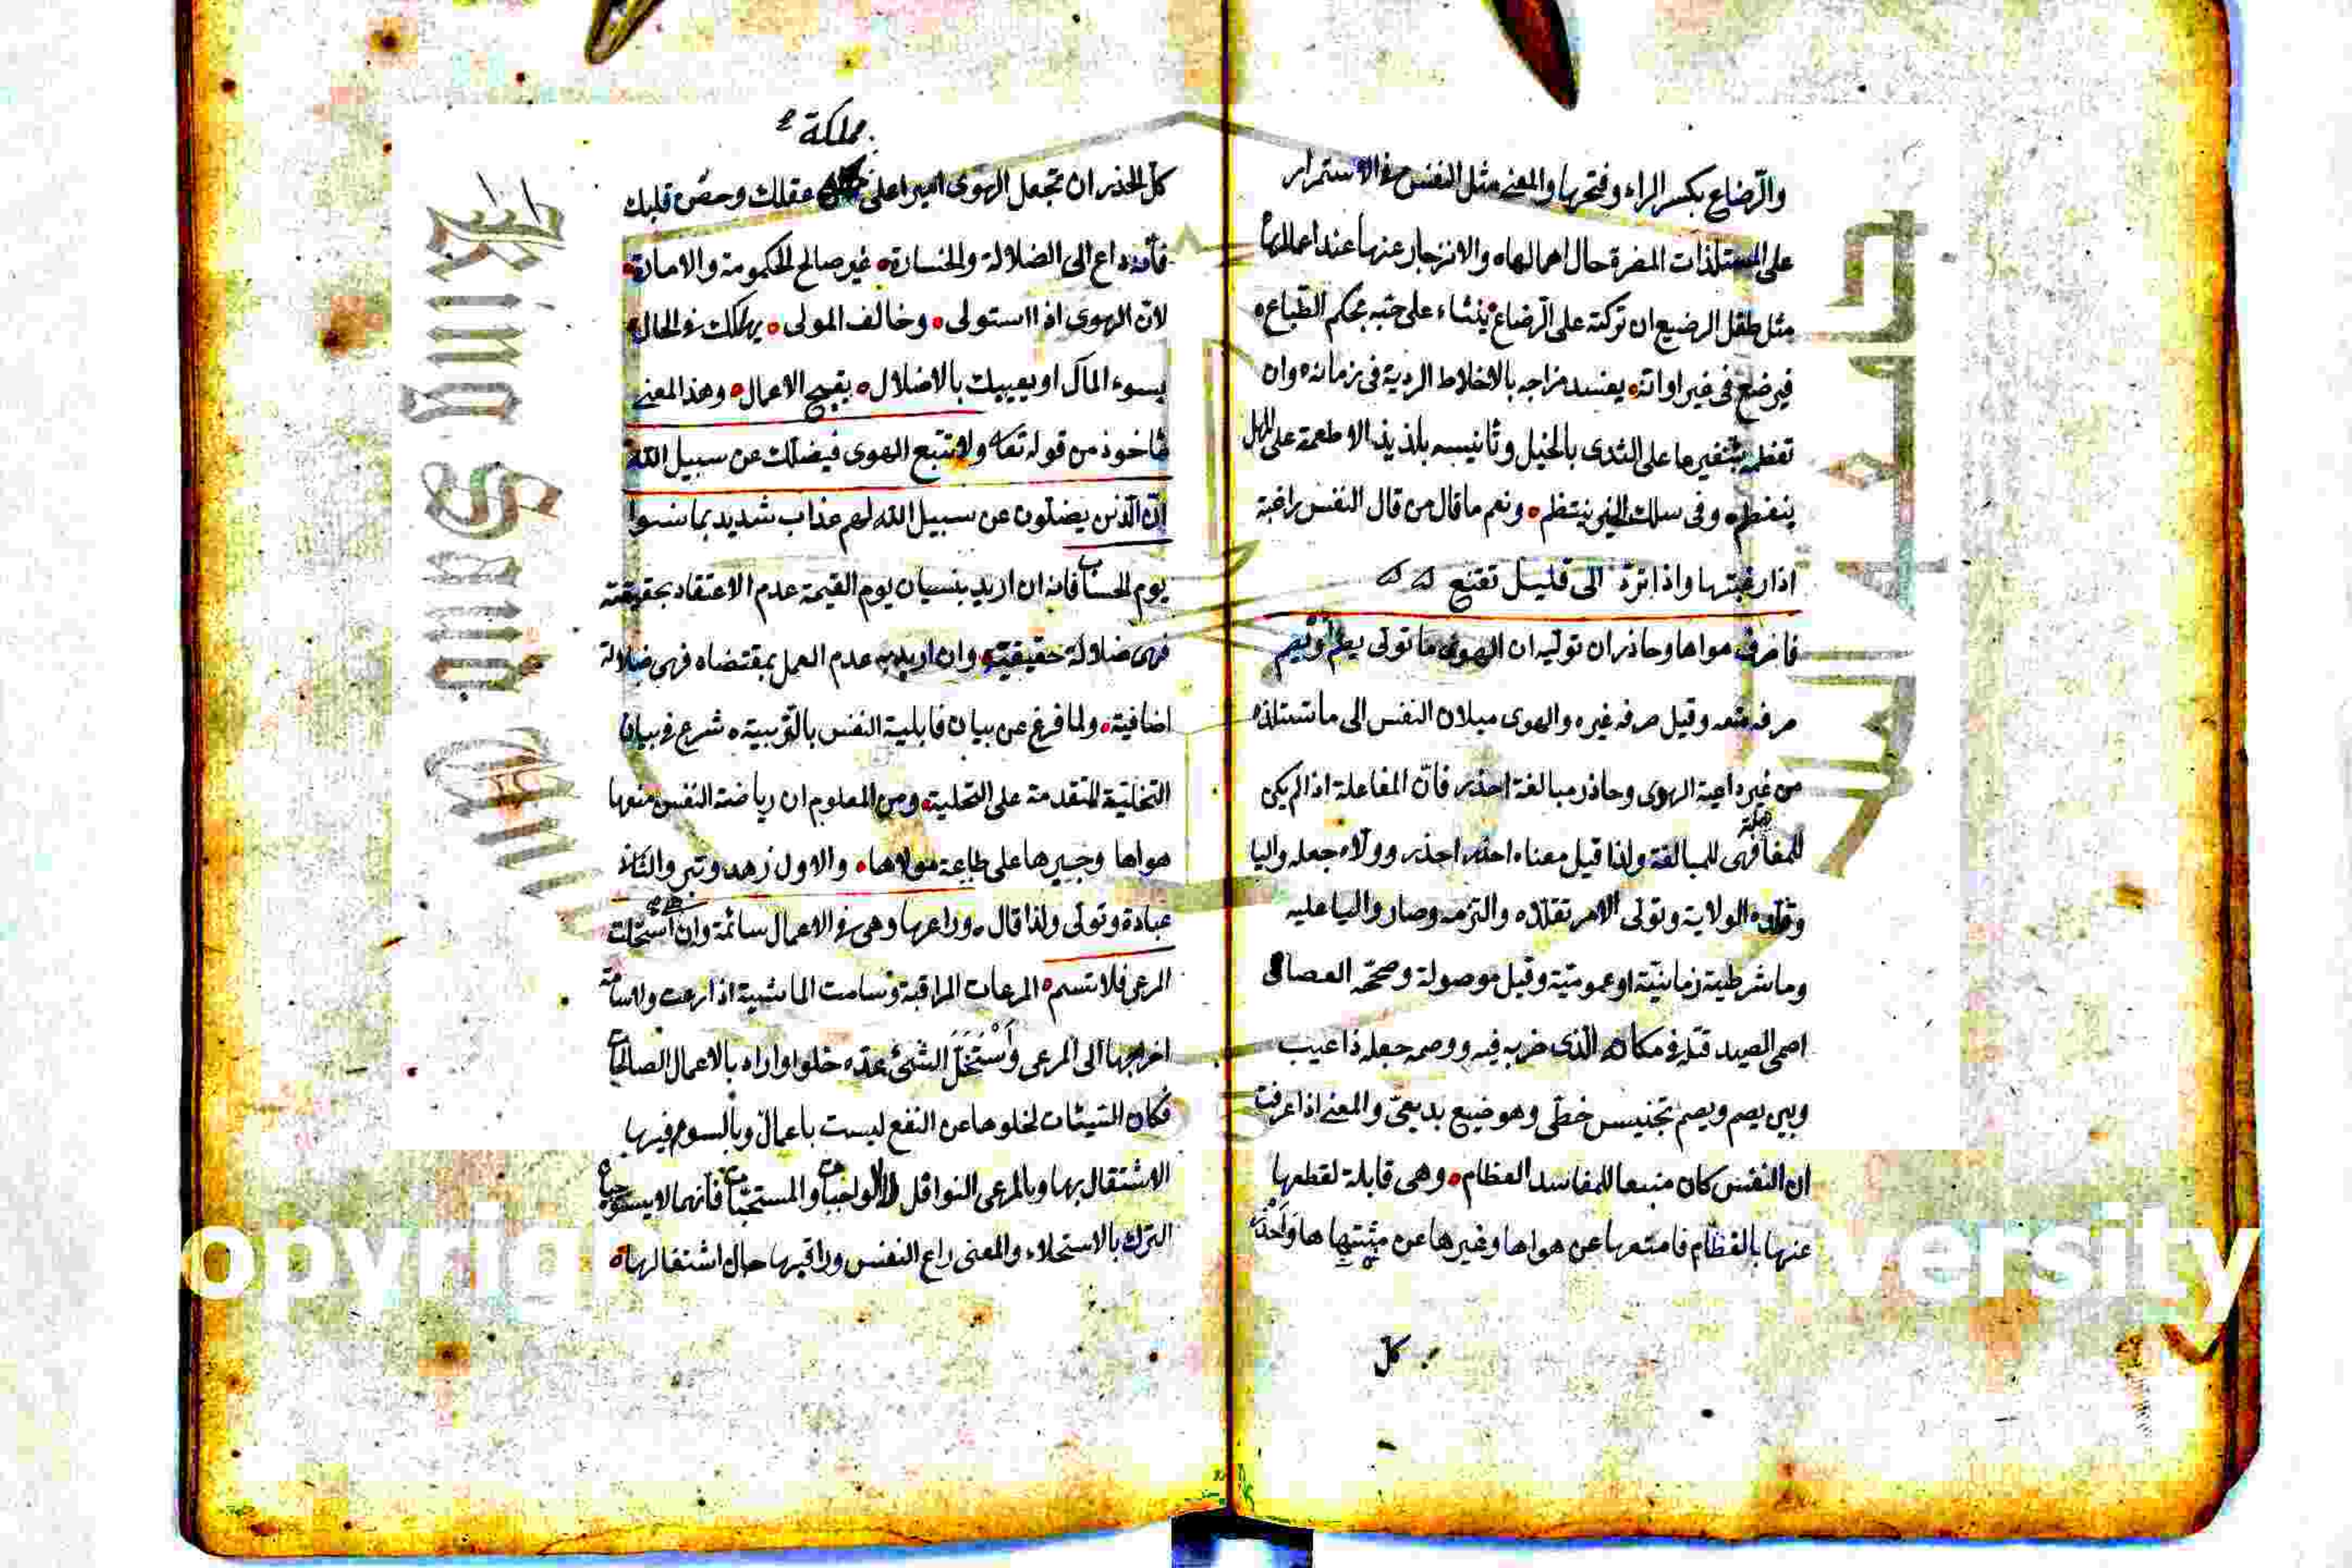 والرضاع بكسر الراء وفتحها والمعنى مثل النفس في الاستمرار
على المستلذات المضرة حال اهمالها ه والانزجار عنها عند اعمالها
مثل طفل الرضيع ان تركته على الرضاع ينشاء على حبه بحكم الطباع ه
فيرضع في غير اوانه ه يفسد مزاجه بالاخلاط الردية في زمانه ه وان
تفطمه بتنفيرها على الثدى بالحيل وتأنيسه بلذيذ الاطعمة على المهل
ينفطم ه وفي سلك الخير ينتظم ه ونعم ما قال من قال النفس راغبة
اذا رغبتها واذا ترد الى قليل تقنع
فاصرف هواها وحاذر ان توليه ان الهوى ما تولى يصم او يصم
صرفه منعه وقيل صرفه غيره والهوى ميلان النفس الى ما تستلذه
من غير داعية الهوى وحاذر مبالغة احذر فان المفاعلة اذا لم يكن
للمغالبة فهى للمبالغة ولذا قيل معناه احذر احذر وولاه جعله واليا
وقلده الولاية وتولى الامر تقلده والتزمه وصار واليا عليه
وما شرطية زمانية او عمومية وقيل موصولة وصحّه العصام
اصمى الصيد قتله في مكانه الذى ضربه فيه ووصمه جعله ذا عيب
وبين يصم ويصم تجنيس خطى وهو ضيع بديعى والمعنى اذا عرفت
ان النفس كان منبعا للمفاسد العظام ه وهى قابلة لقطعها
عنها بالفطام فامنعها عن هواها وغيرها عن منيتها
كل
مملكة
كل الحذر ان تجعل الهوى اميرا على عقلك وحصن قلبك
فأنه داع الى الضلالة والخسارة ه غير صالح للحكومة والامارة ه
لان الهوى اذا استولى ه وخالف المولى ه يهلكك في الحال ه
بسوء المآل او يعيبك بالاضلال ه بقبيح الاعمال ه وهذا المعنى
مأخوذ من قوله تعا ولا تتبع الهوى فيضلك عن سبيل الله
ان الذين يضلون عن سبيل الله لهم عذاب شديد بما نسوا
يوم الحساب فانه ان اريد بنسيان يوم القيمة عدم الاعتقاد بحقيقته
فهى ضلالة حقيقية ه وان اريد به عدم العمل بمقتضاه فهى ضلالة
اضافية ه ولما فرغ عن بيان قابلية النفس بالتربية ه شرع في بيان
التخلية المتقدمة على التحلية ه ومن المعلوم ان رياضة النفس منعها
هواها وجبيرها على طاعة مولاها ه والاول زهد وتبر والثانى
عبادة وتولى ولذا قال ه وراعها وهى في الاعمال سائمة وان هى استحلت
المرعى فلا تسم ه المرعات المراقبة وسامت الماشية اذا رعت والاسامة
اخراجها الى المرعى واستحل الشئ عدّه حلوا واراد بالاعمال الصالحات
فكان السيئات لخلوها عن النفع ليست باعمال وبالسوم فيها
الاشتغال بها وبالمرعى النوافل لا الواجبات والمستحبات فأنهما لا يستوجبان
الترك بالاستحلاء والمعنى راع النفس وراقبها حال اشتغالها ه